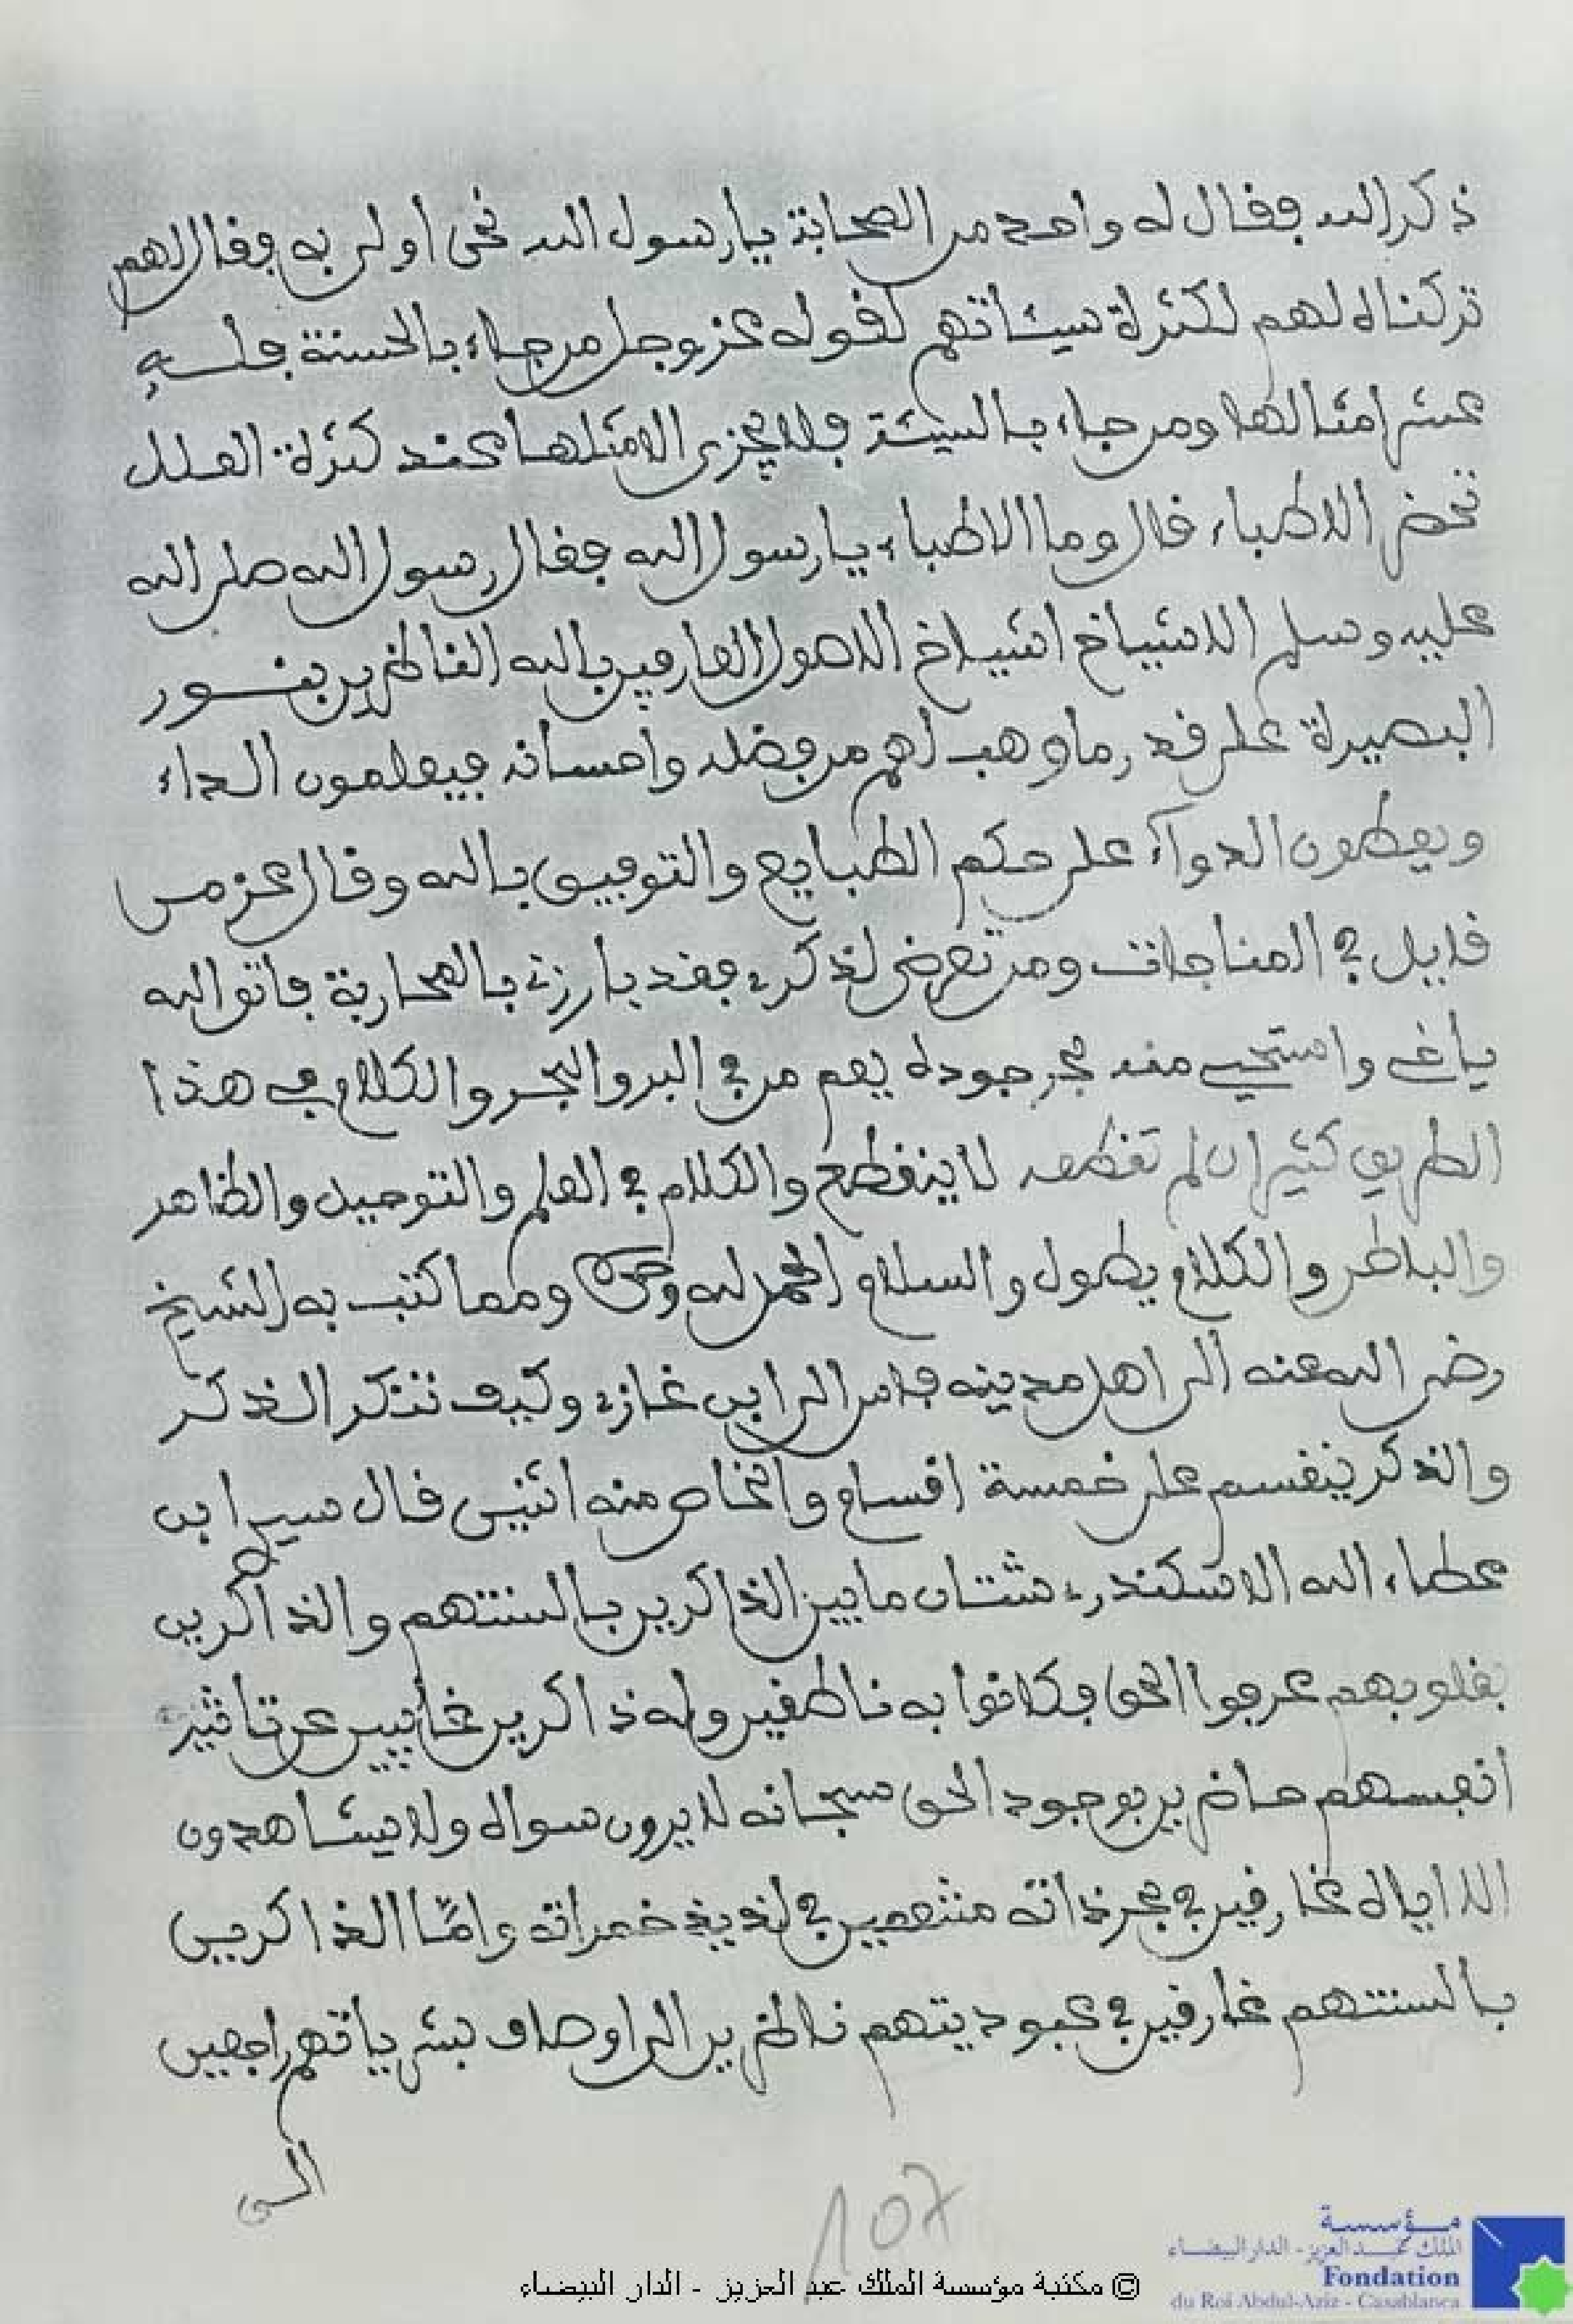 ذكر الله فقال له واحد من الصحابة يا رسول الله نحن اولى به فقال لهم
تركناه لهم لكثرة سيئاتهم لقوله عز وجل من جاء بالحسنة فلـــه
عشر امثالها ومن جاء بالسيئة فلا يجزى الا مثلها عند كثرة العلل
تحضر الاطباء قال وما الاطباء يا رسول الله فقال رسول الله صلى الله
عليه وسلم الاشياخ اشياخ الاحوال العارفين بالله الناظرين بنـــور
البصيرة على قدر ما وهب لهم من فضله واحسانه فيعلمون الداء
ويعطون الدوآء على حكم الطبايع والتوفيق بالله وقال عز من
قايل في المناجات ومن تعرض لذكرى فقد بارزني بالمحاربة فاتق الله
ياخي واستحي منه بحر جوده يعم من في البر والبحر والكلام في هذا
الطريق كثير ان لم تقطعه لا ينقطع والكلام في العلم والتوحيد والظاهر
والباطن والكلام يطول والسلام الحمد لله وحده ومما كتب به الشيخ
رضي الله عنه الى اهل مدينه فاس الى ابن غازي وكيف نذكر الذكر
والذكر ينقسم على خمسة اقسام والخاص منه اثنين قال سيدي ابن
عطاء الله الاسكندري شتان ما بين الذاكرين بالسنتهم والذاكرين
بقلوبهم عرفوا الحق فكانوا به ناطقين وله ذاكرين غايبين عن تاثير
انفسهم حاضرين بوجود الحق سبحانه لا يرون سواه ولا يشاهدون
الا اياه غارقين في بحر ذاته متنعمين في لذيذ خمراته وامّا الذاكرين
بالسنتهم غارقين في عبوديتهم ناظرين الى اوصاف بشرياتهم راجعين
الى
107
© مكتبة مؤسسة الملك عبد العزيز - الدار البيضاء
مؤسسة
الملك عبد العزيز - الدار البيضاء
Fondation
du Roi Abdul-Aziz - Casablanca